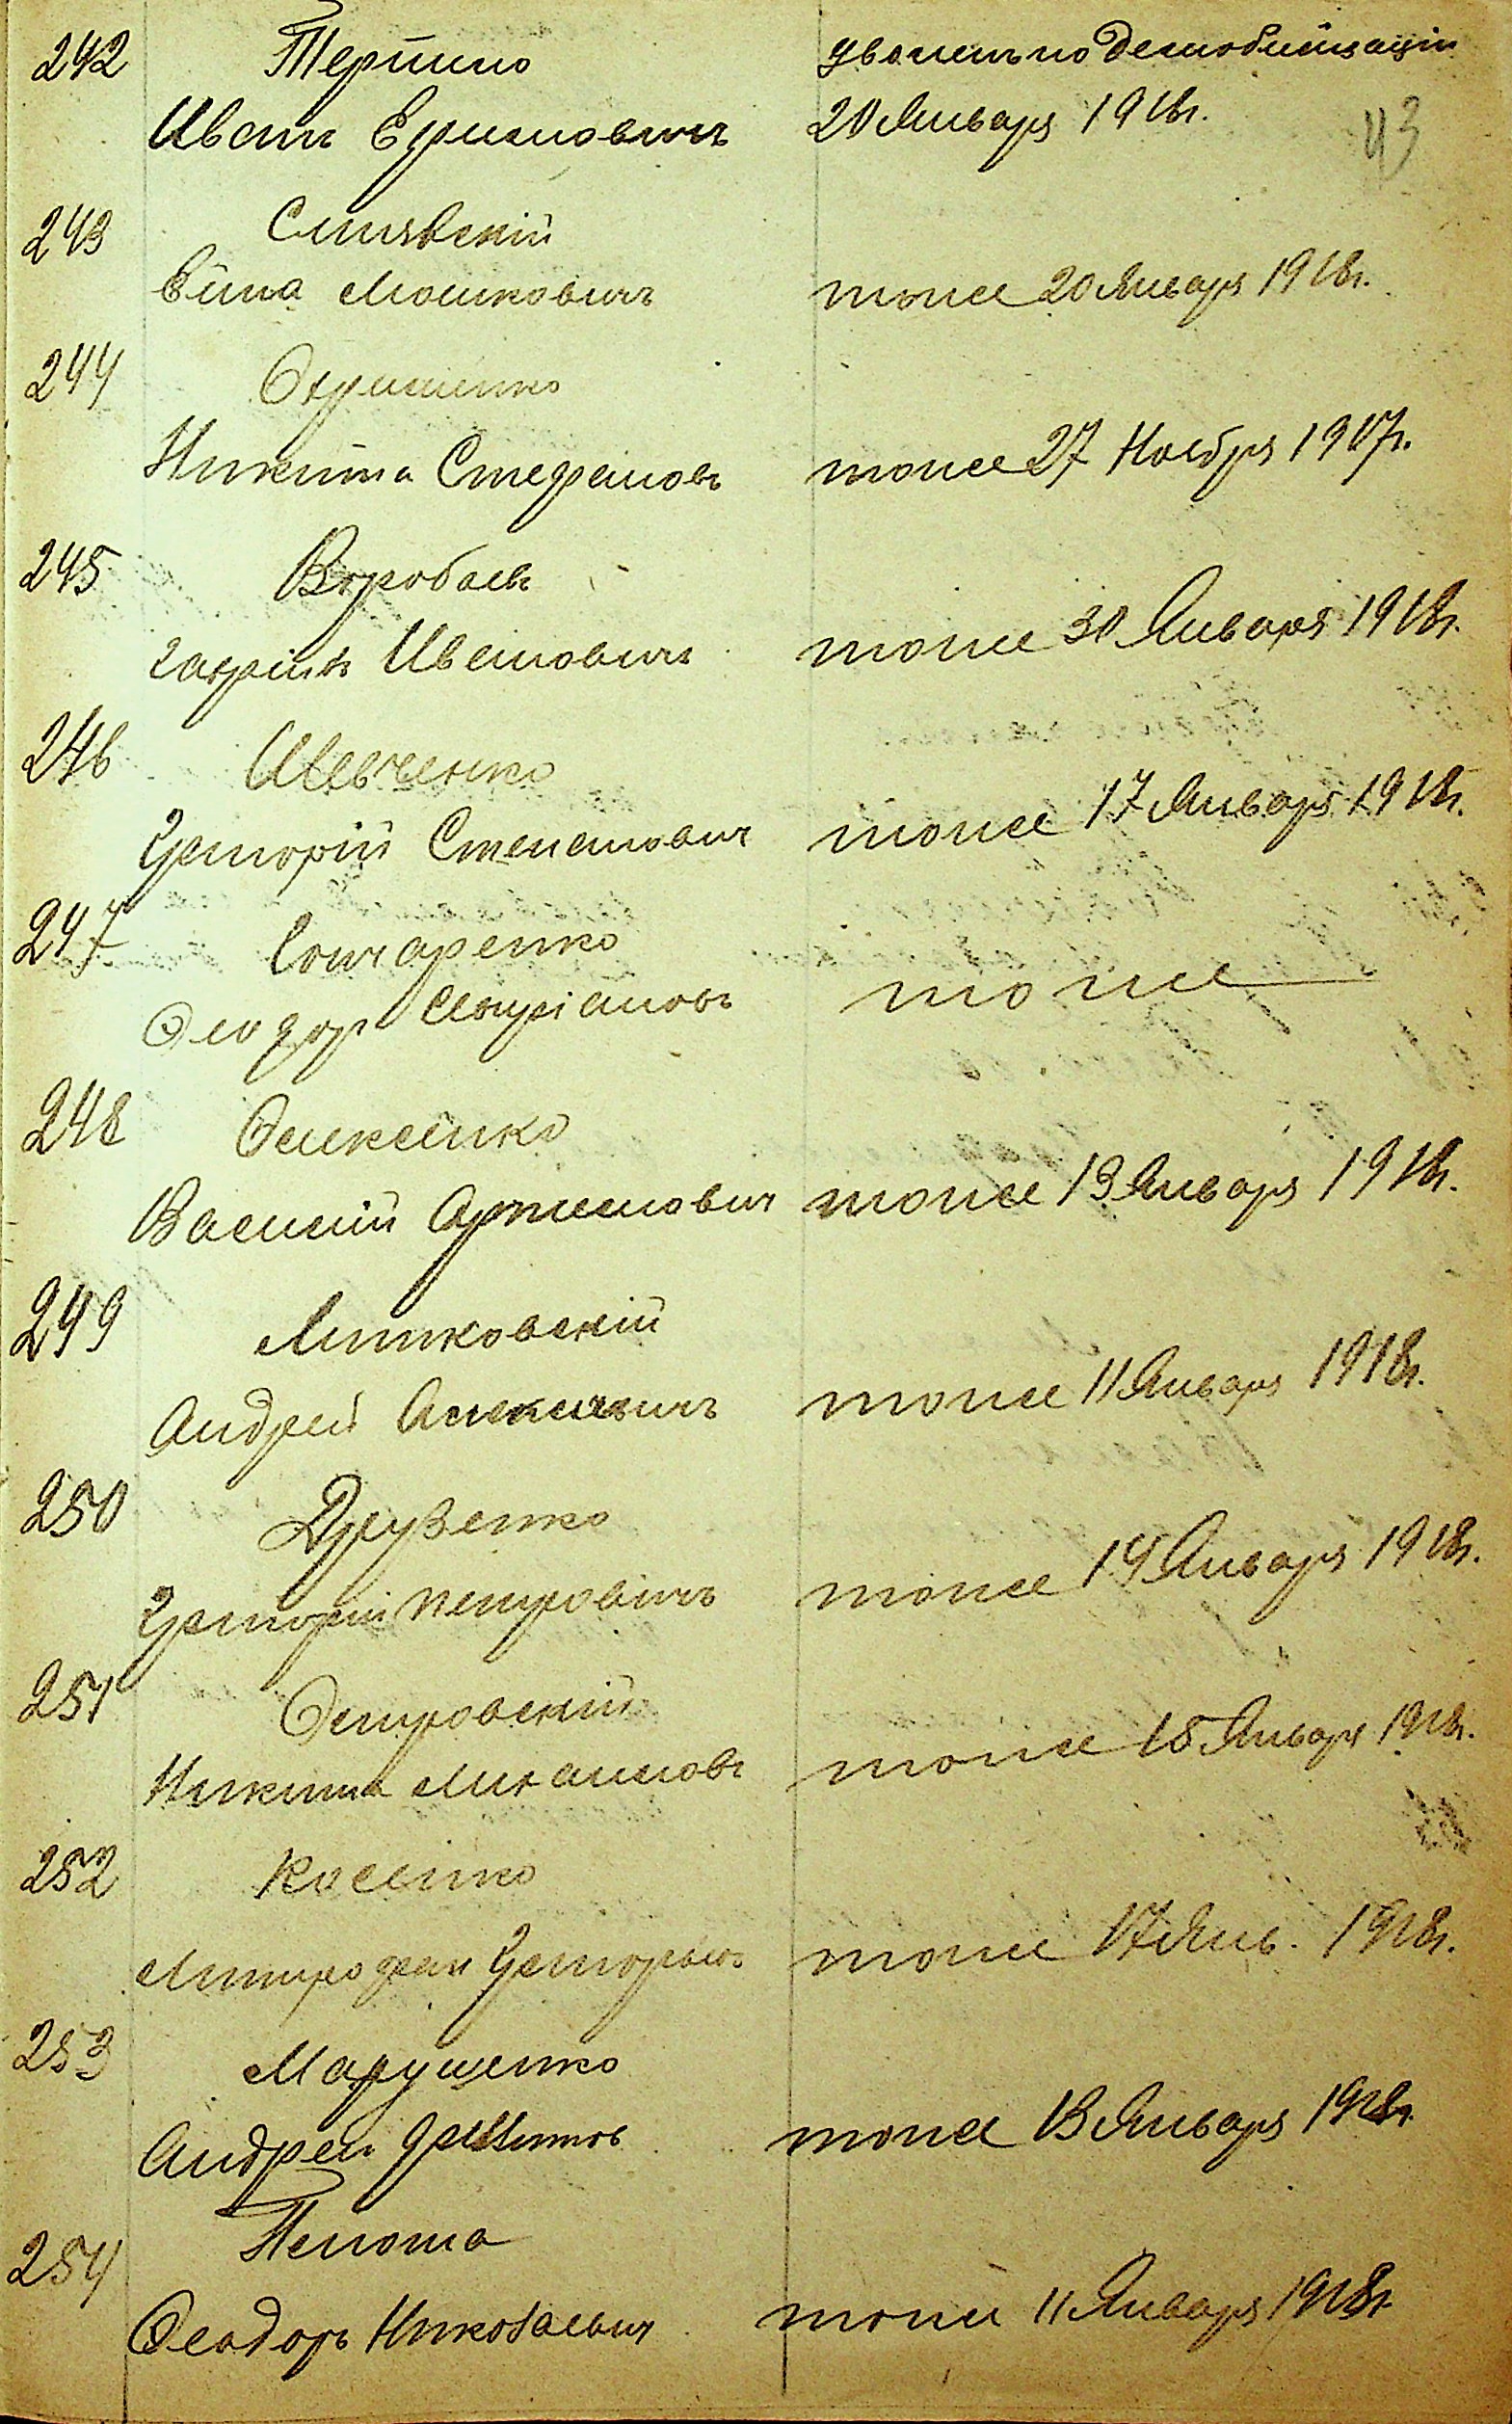 242 Терпило уволенъ по демобилизаціи
Иванъ Ефимовичъ 20 Января 1918г.
43
243 Синявскій
Мошковичъ тоже 20 Января 1918г.
244 Охрименко
Никита Стефановъ тоже 27 Ноября 1917г.
245 Воробьевъ
Гавріилъ Ивановичъ тоже 30 Января 1918г.
246 Шевченко
Григорій Степановичъ тоже 17 Января 1918г.
247 Гончаренко
Феодоръ тоже
248
Василій Артемовичъ тоже 13 Января 1918г.
249 Линковскій
Андрей Алексеевичъ тоже 11 Января 1918г.
250 Друзенко
Григорій Петровичъ тоже 14 Января 1918г.
251 Островскій
Никита Михаиловъ тоже 15 Января 1918г.
252 Косенко
Митрофан Григорьев тоже 17 Янв. 1918г.
253 Марущенко
Андрей тоже 13 Января 1918г.
254
Феодоръ Николаевич тоже 11 Января 1918г.